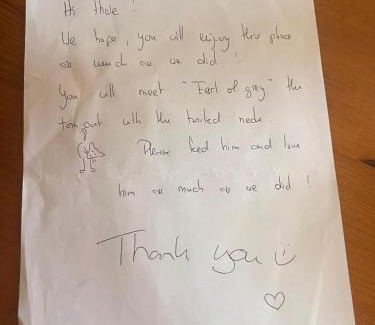 Hi there!
We hope, you will enjoy this place
as much as we did!
You will meet "Earl of grey" the
tom cat with the twisted neck.
Please feed him and love
him as much as we did!
Thank you